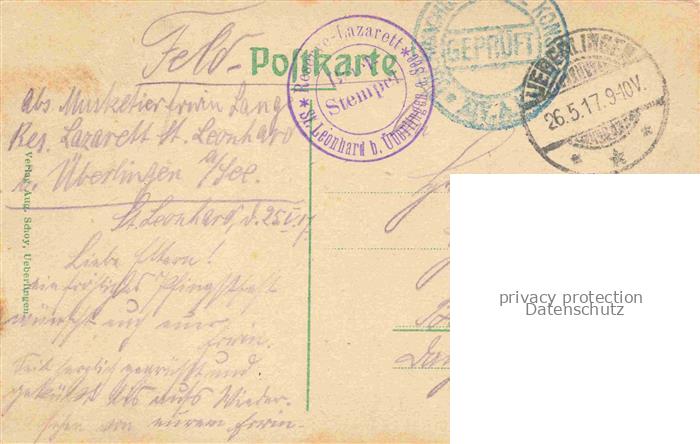 Feld-
Postkarte
Reserve-Lazarett
Stempel
St. Leonhard b. Überlingen a. See
GEPRÜFT
UEBERLINGEN
26.5.17. 9-10V.
Abs. Musketier Erwin Lang
Res. Lazarett St. Leonhard
Überlingen a/See.
St. Leonhard, d. 25.V.17.
Liebe Eltern!
ein fröhliches Pfingstfest
wünscht euch euer
Erwin.
Seid herzlich gegrüßt und
geküßt bis aufs Wieder-
sehen von eurem Erwin.
Verlag Aug. Schoy, Ueberlingen
privacy protection
Datenschutz